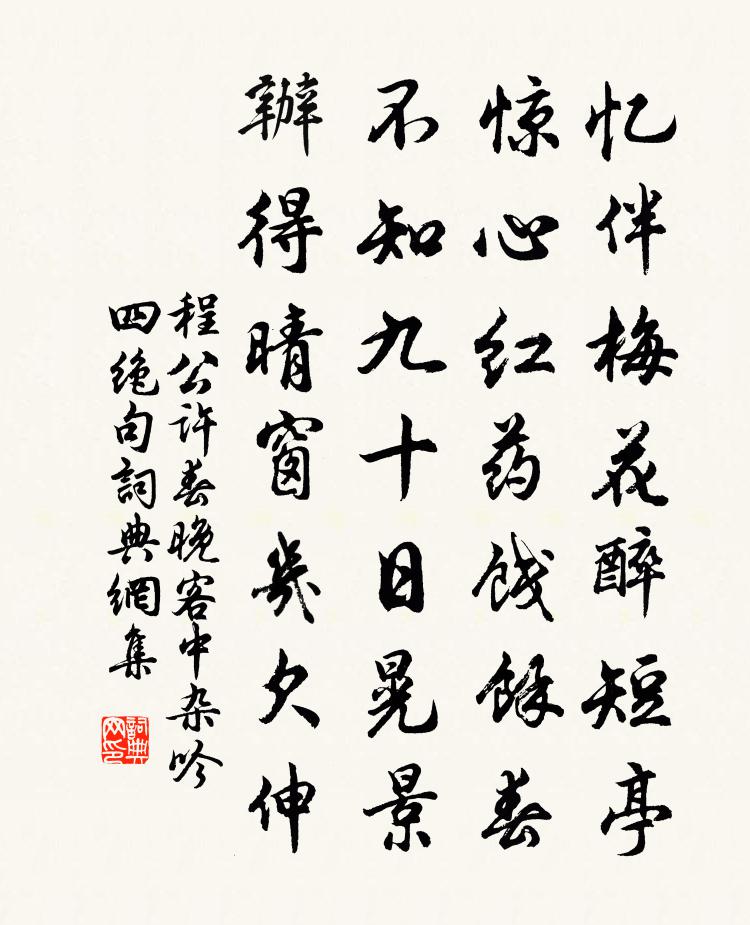 忆伴梅花醉短亭
惊心红药饯馀春
不知九十日晃景
辦得晴窗幾欠伸
程公许春晚客中杂吟
四绝句詞典網集
詞典
网印